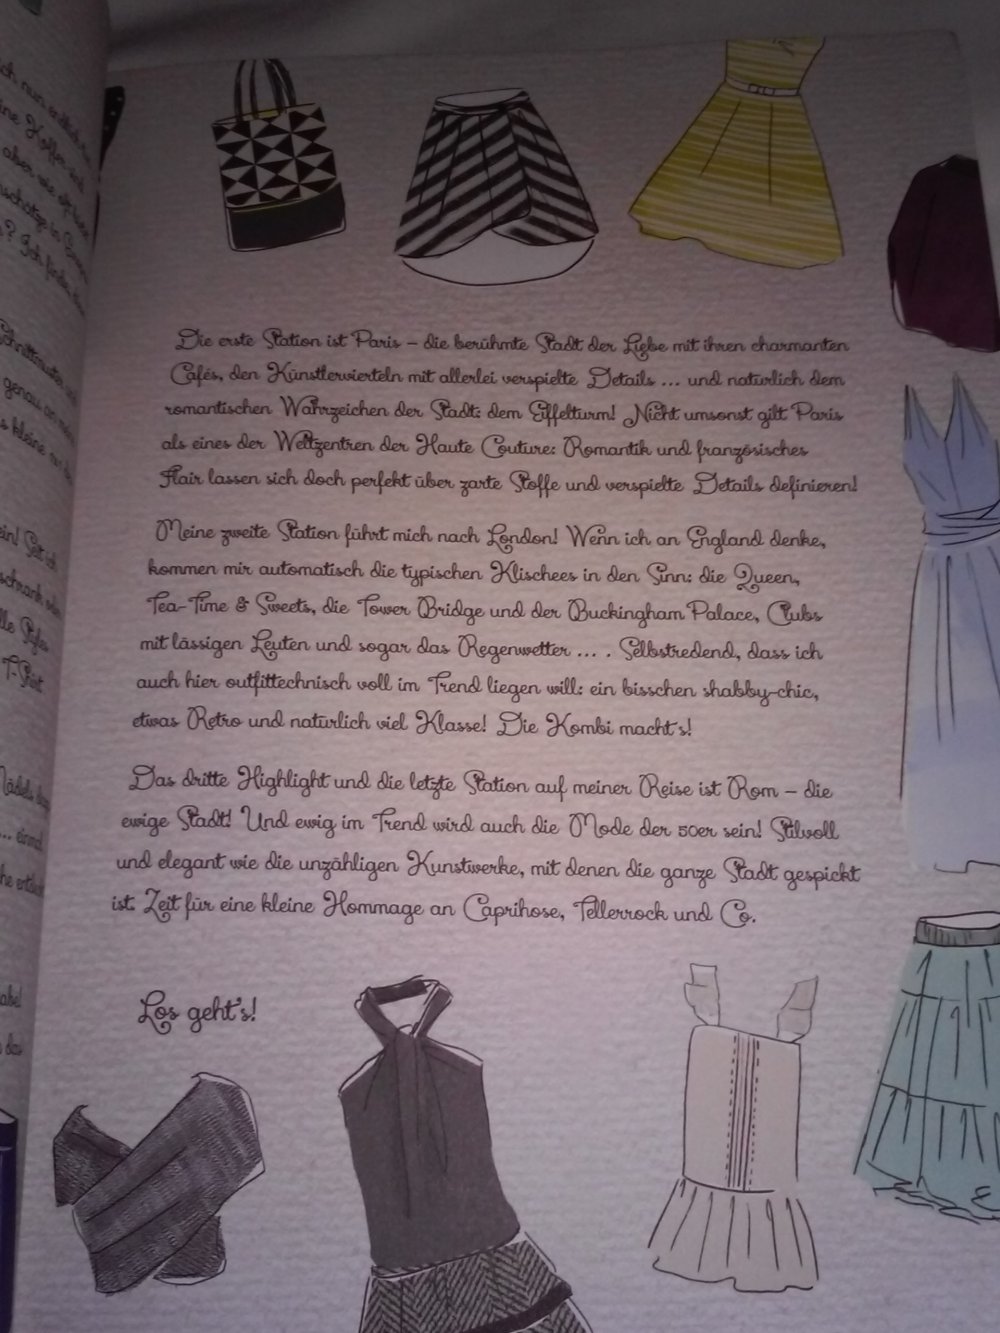 Die erste Station ist Paris – die berühmte Stadt der Liebe mit ihren charmanten
Cafés, den Künstlervierteln mit allerlei verspielte Details ... und natürlich dem
romantischen Wahrzeichen der Stadt: dem Eiffelturm! Nicht umsonst gilt Paris
als eines der Weltzentren der Haute Couture: Romantik und französisches
Flair lassen sich doch perfekt über zarte Stoffe und verspielte Details definieren!
Meine zweite Station führt mich nach London! Wenn ich an England denke,
kommen mir automatisch die typischen Klischees in den Sinn: die Queen,
Tea-Time & Sweets, die Tower Bridge und der Buckingham Palace, Clubs
mit lässigen Leuten und sogar das Regenwetter ... . Selbstredend, dass ich
auch hier outfittechnisch voll im Trend liegen will: ein bisschen shabby-chic,
etwas Retro und natürlich viel Klasse! Die Kombi macht's!
Das dritte Highlight und die letzte Station auf meiner Reise ist Rom – die
ewige Stadt! Und ewig im Trend wird auch die Mode der 50er sein! Stilvoll
und elegant wie die unzähligen Kunstwerke, mit denen die ganze Stadt gespickt
ist. Zeit für eine kleine Hommage an Caprihose, Tellerrock und Co.
Los geht's!